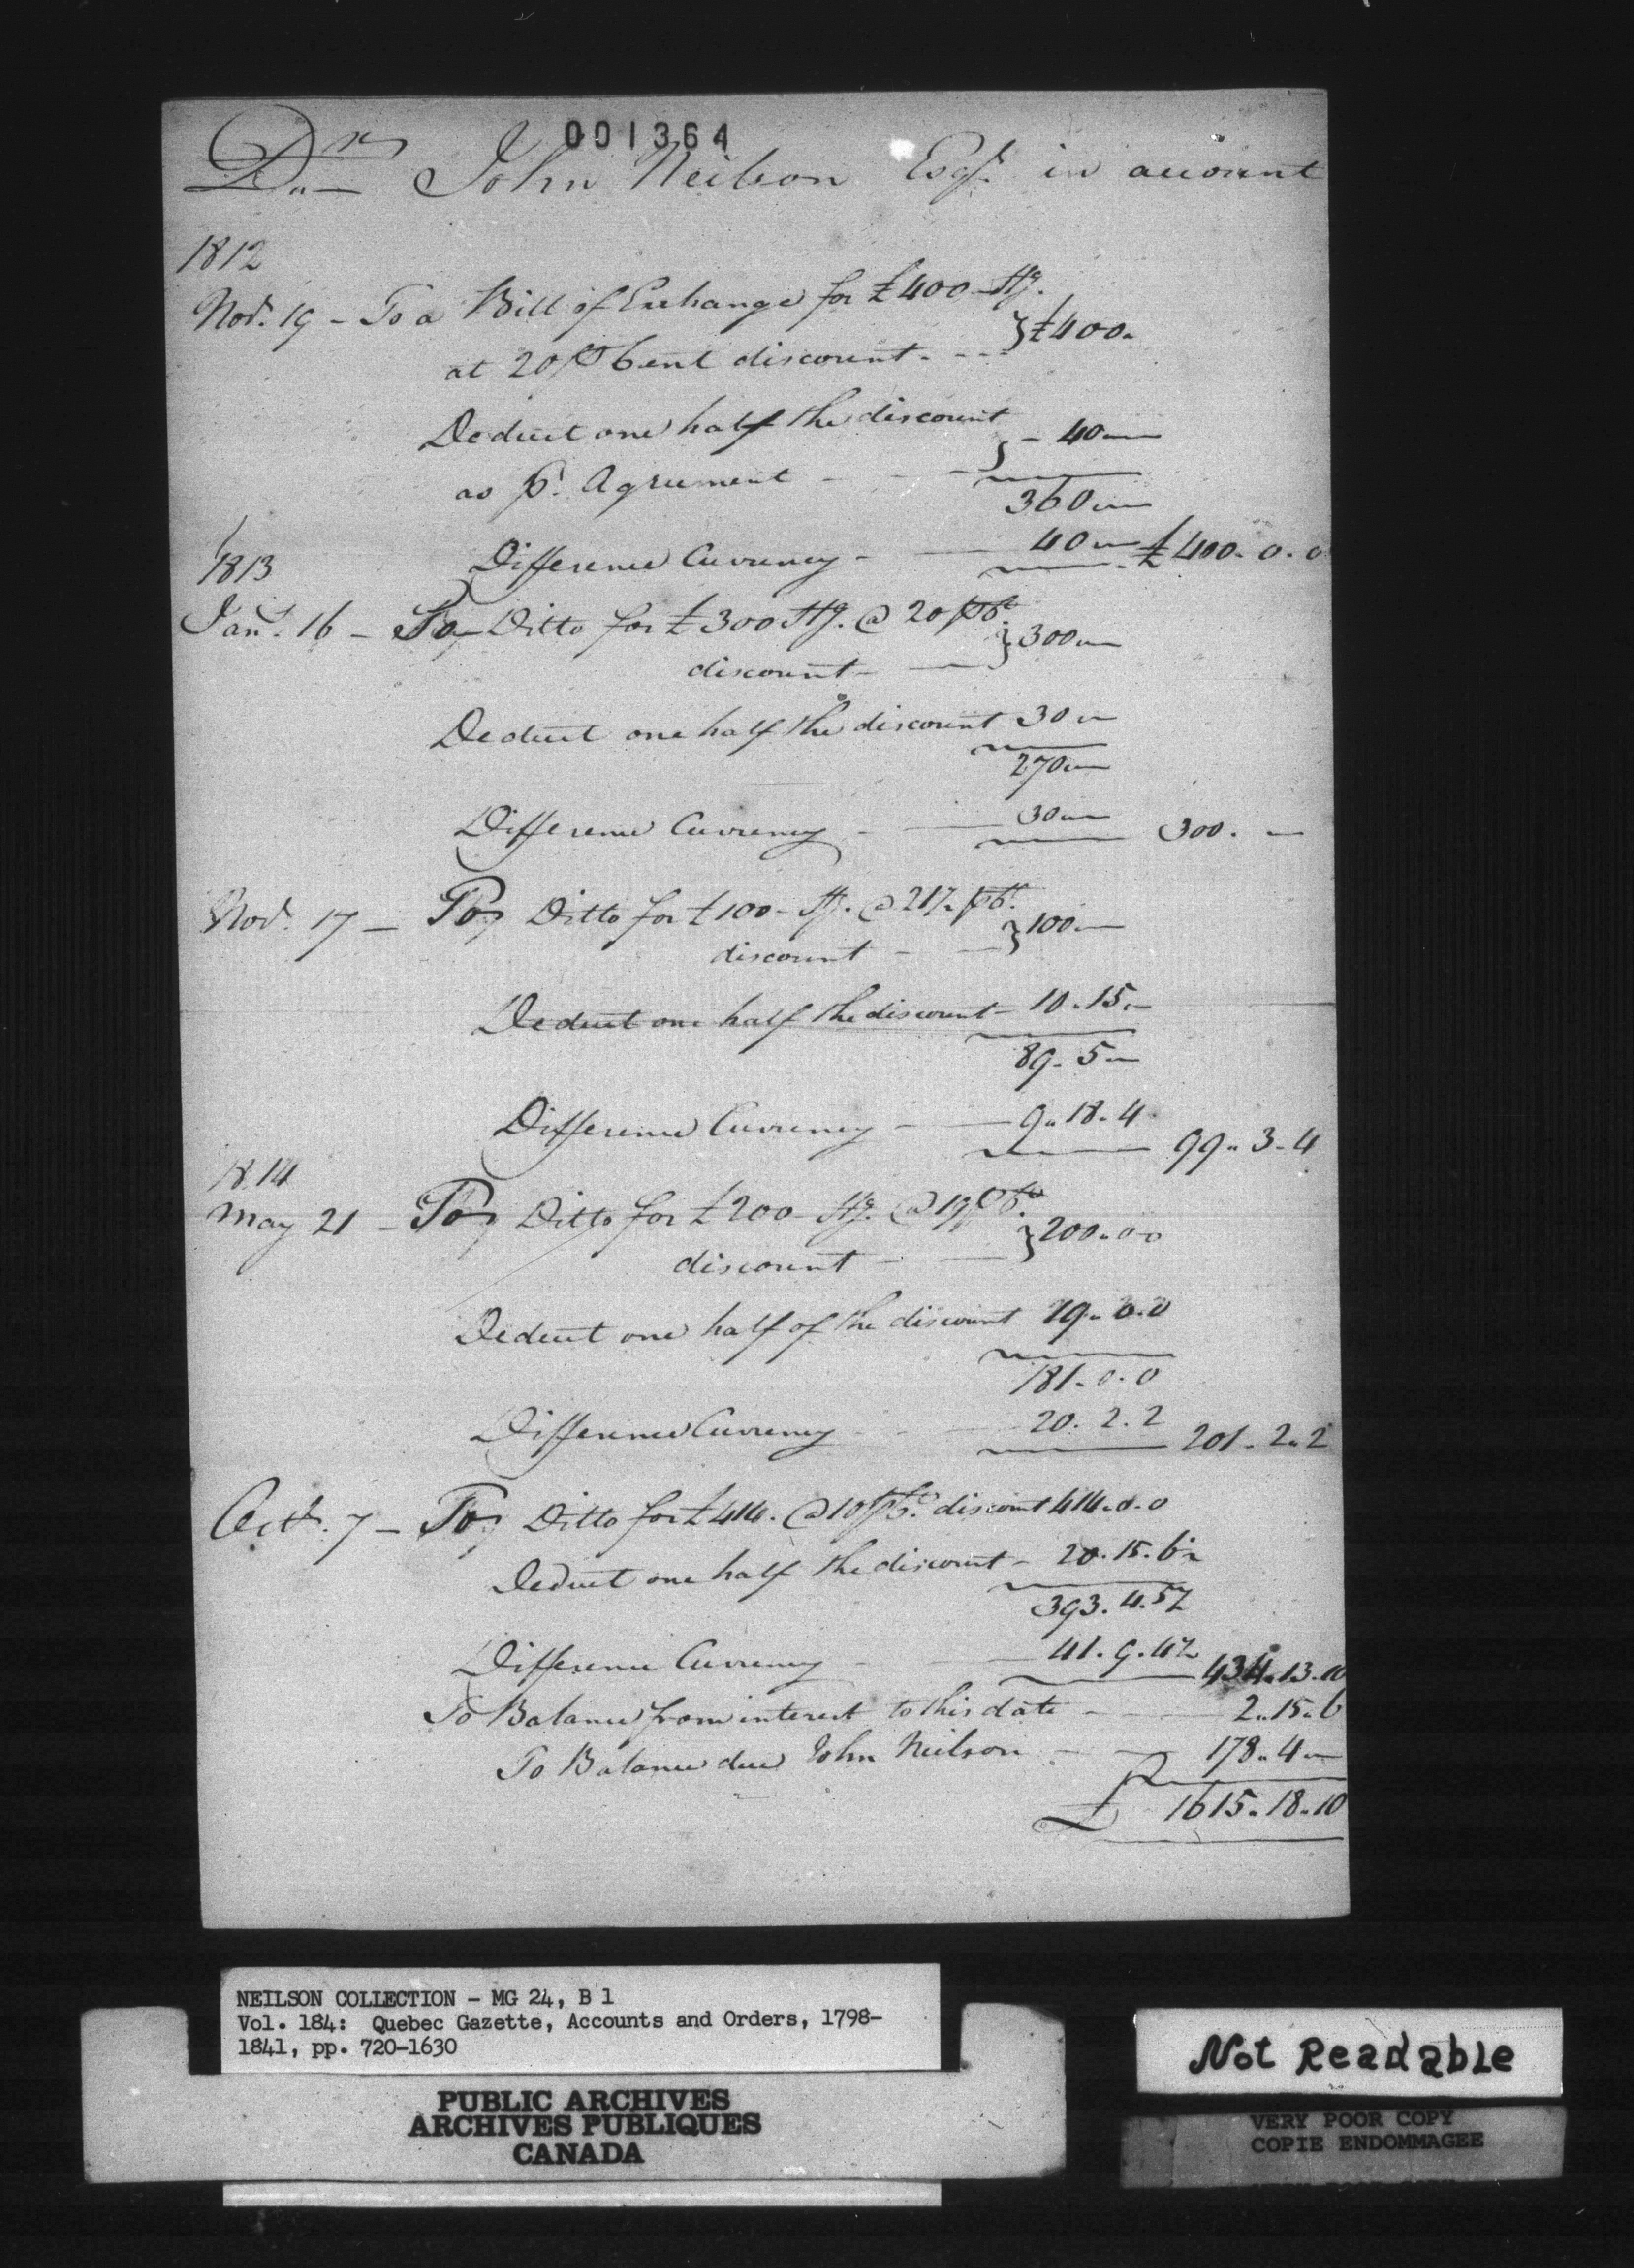 001364
Drs John Neilson Esqr. in account
1812
Novr. 19 - To a Bill of Exchange for £400 Stg.
at 20 P Cent discount - - - } £400 "
Deduct one half the discount
as pr. Agreement - - - } - 40 " —
360 " —
Difference Currency - — 40 " — £400 - 0 - 0
1813
Jany. 16 - To Ditto for £300 Stg. @ 20 P Ct.
discount - — } 300 " —
Deduct one half the discount 30 " —
270 " —
Difference Currency - — 30 " — 300 . —
Novr. 17 - To Ditto for £100 - Stg. @ 21½ P Ct.
discount - — } 100 " —
Deduct one half the discount - 10 . 15 . —
89 . 5 " —
Difference Currency - — 9 " 18 - 4
99 " 3 - 4
1814
May 21 - To Ditto for £200 - Stg. @ 19 P Ct.
discount - — } 200 " 0 0
Deduct one half of the discount 19 " 0 . 0
181 - 0 - 0
Difference Currency - — 20 . 2 . 2
201 - 2 " 2
Octr. 7 - To Ditto for £414 . @ 10 P Ct. discount 414 . 0 . 0
Deduct one half the discount - 20 . 15 . 6½
393 . 4 . 5½
Difference Currency - — 41 . 9 . 4½
434 . 13 . 10
To Balance from interest to this date - — 2 . 15 . 6
To Balance due John Neilson - — 178 " 4 —
£ 1615 . 18 . 10
NEILSON COLLECTION - MG 24, B 1
Vol. 184: Quebec Gazette, Accounts and Orders, 1798-
1841, pp. 720-1630
PUBLIC ARCHIVES
ARCHIVES PUBLIQUES
CANADA
Not Readable
VERY POOR COPY
COPIE ENDOMMAGEE